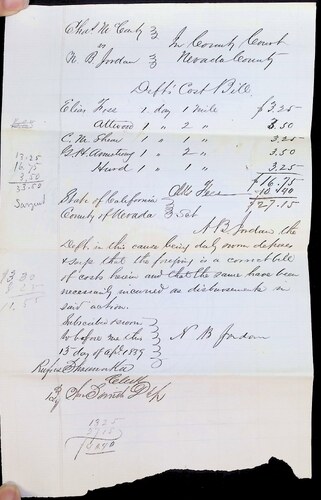 Chas McCurty
vs
N B Jordan
In County Court
Nevada County
Defts Cost Bill
Elias Free 1 day 1 mile $3.25
Attwood 1 " 2 " 3.50
1 " 1 " 3.25
G H Armstrong 1 " 2 " 3.50
Hurd 1 " 1 " 3.25
$16.75
10.40
$27.15
13.25
16.75
3.50
33.50
Sargent
State of California
County of Nevada
N B Jordan the
Deft in this cause being duly sworn deposes
& says that the foregoing is a correct bill
of costs herein and that the same have been
necessarily incurred as disbursements in
said action.
Subscribed & sworn
to before me this
15 day of Apl. 1859
N B Jordan
Rufus Shoemaker
Clerk
By